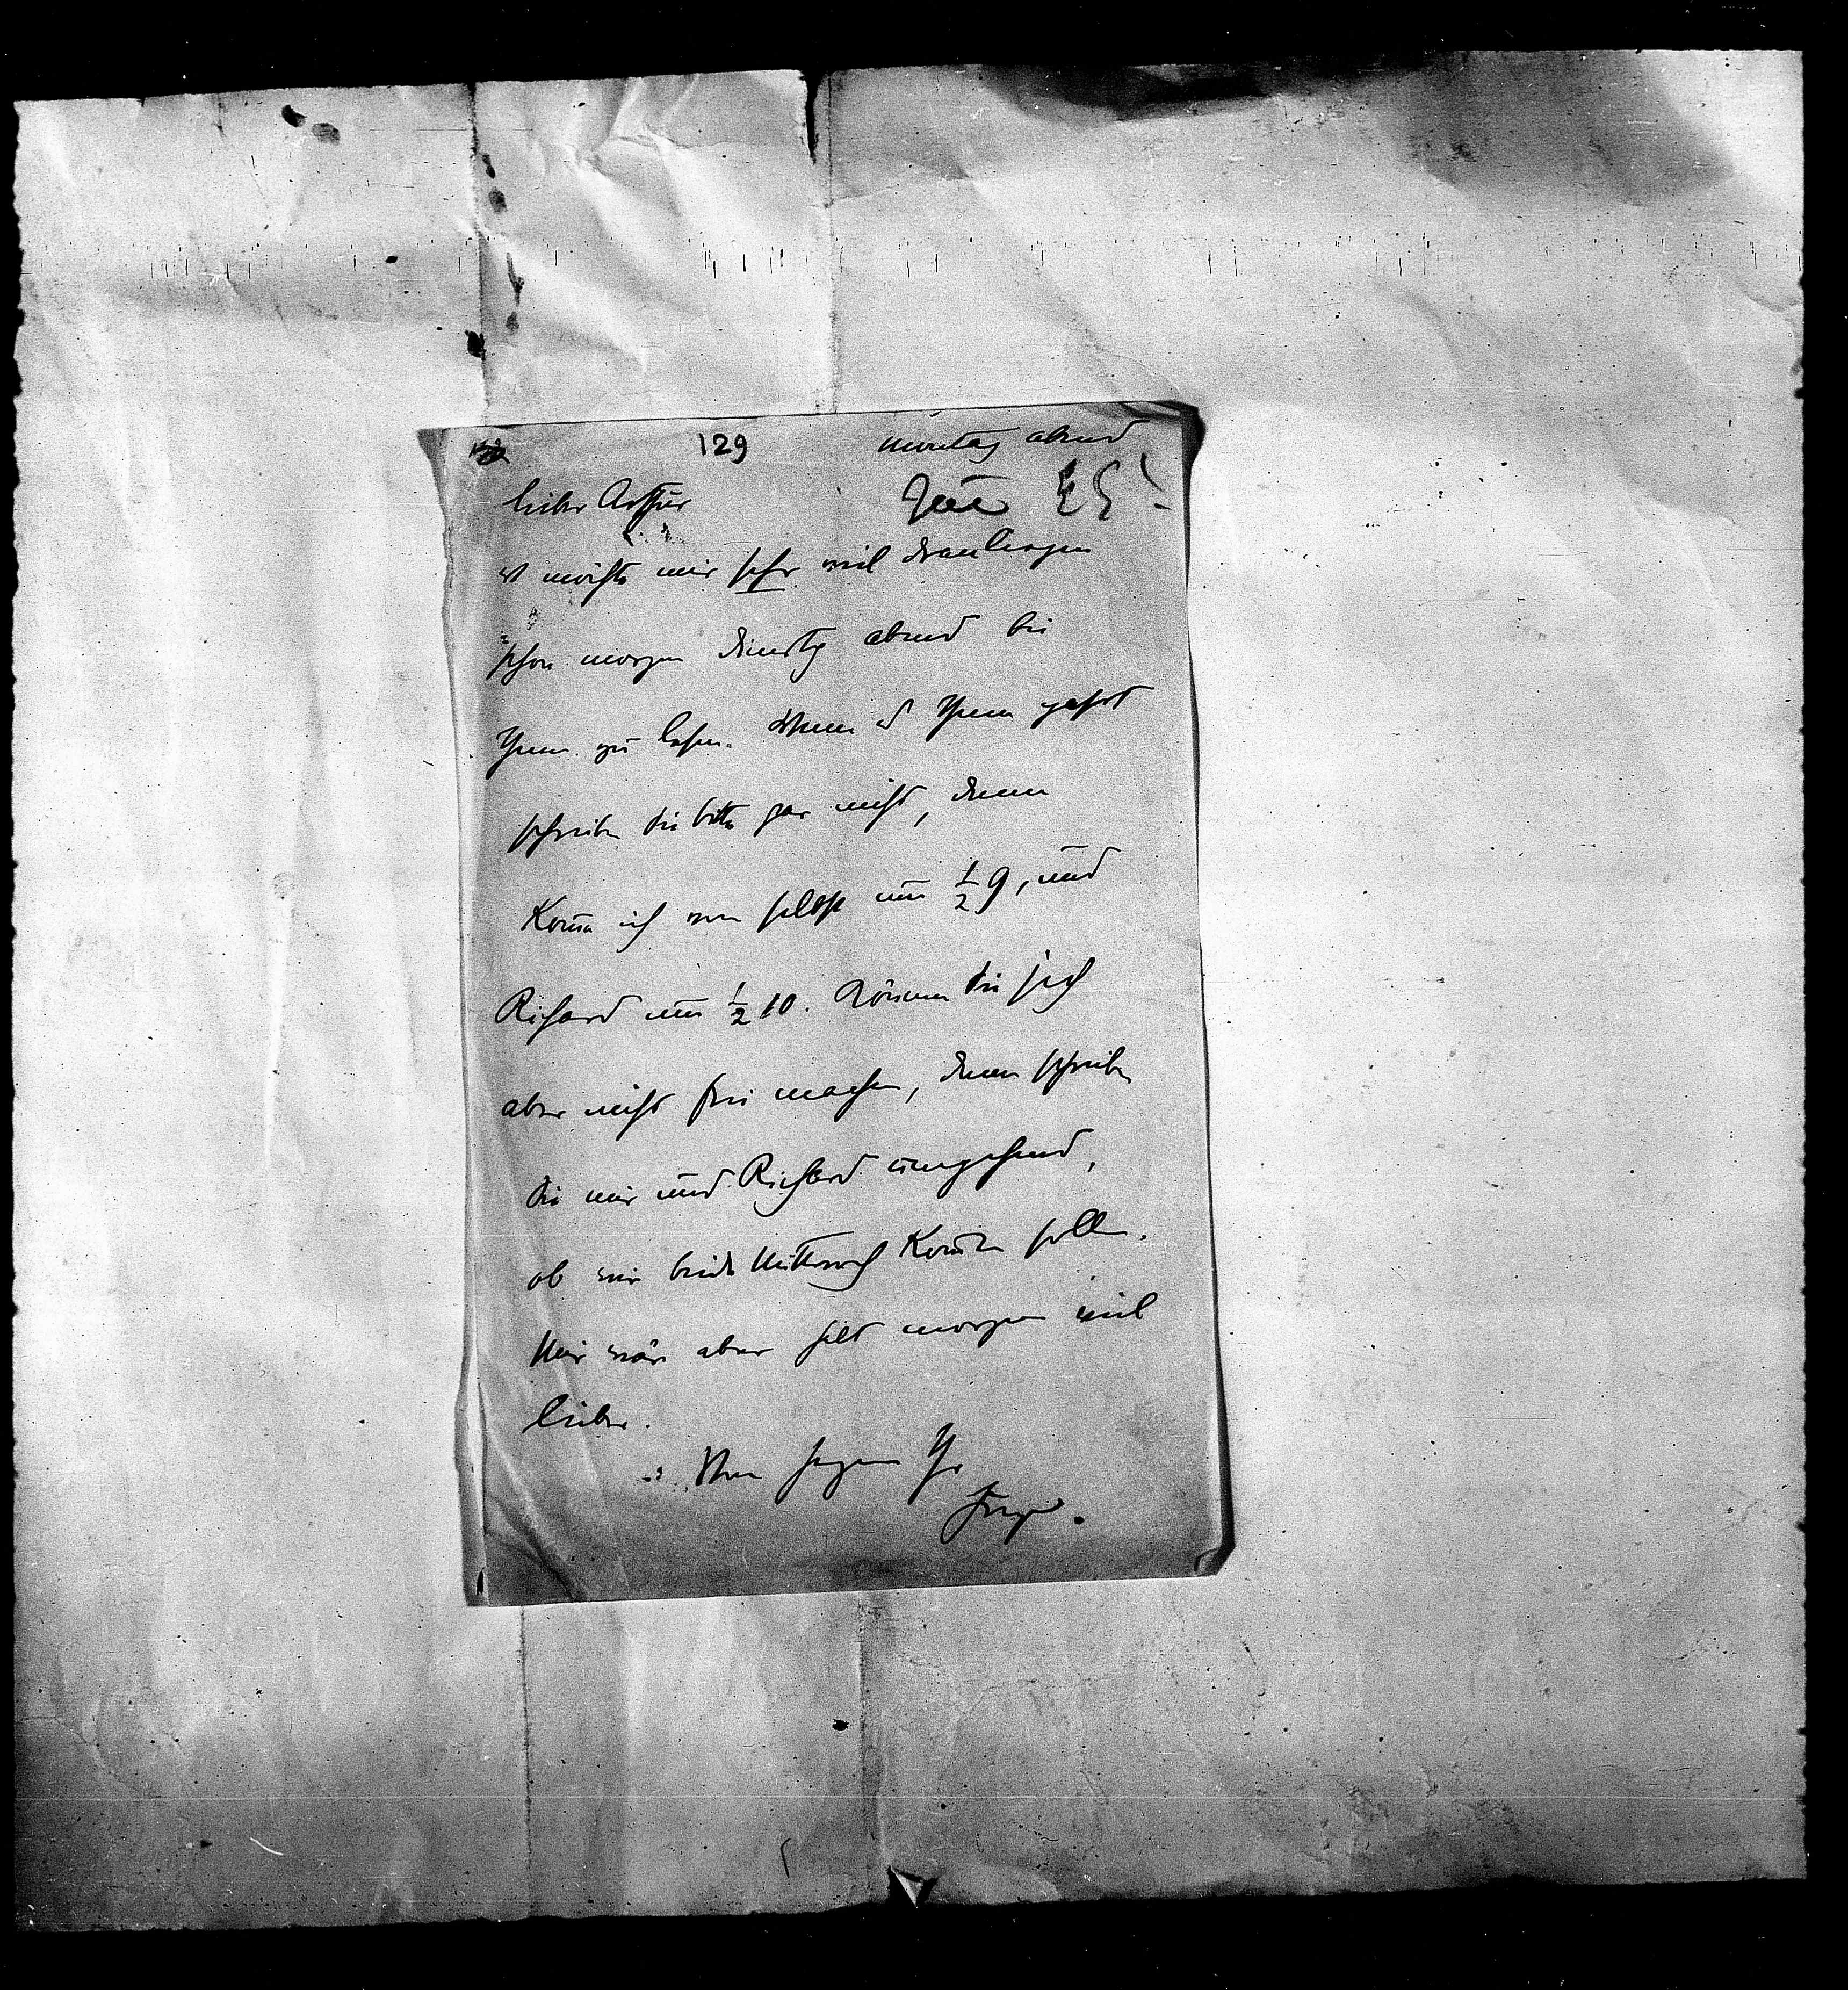 129
Montag abend
lieber Arthur
es möchte mir sehr viel dranliegen
schon morgen Dinstag abend bei
Ihnen zu lesen. Wenn es Ihnen passt
schreiben Sie bitte gar nicht, denn
komme ich von selbst um ½ 9, und
Richard um ½ 10. Können Sie sich
aber nicht frei machen, dann schreiben
Sie mir und Richard umgehend,
ob wir beide Mittwoch kommen sollen.
Mir wäre aber halt morgen viel
lieber.
Von Herzen Ihr
Hugo.